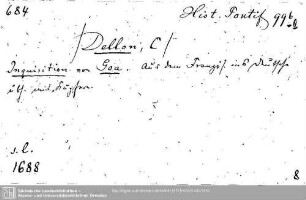 684
Hist. Pontif 99 b
/Dellon, C/
Inquisition von Goa. Aus dem Französ. ins Deutsche
mit Kupfern
s. l.
1688
8
Sächsische Landesbibliothek -
Staats- und Universitätsbibliothek Dresden